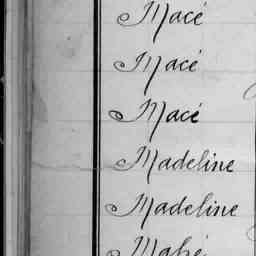 Macé
Macé
Macé
Madeline
Madeline
Mahé